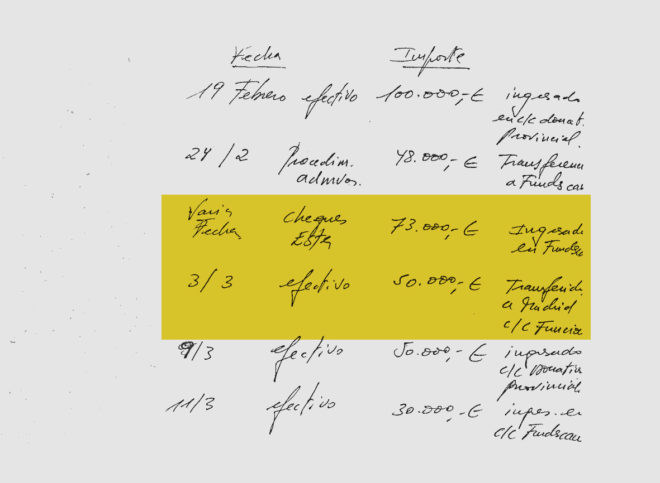 Fecha Importe
19 Febrero efectivo 100.000,-€ ingresado
en c/c donat.
Provincial.
24/2 Procedim. 48.000,-€ Transferen
admvos. a Fundscan
Varias Cheques 73.000,-€ Ingresad
Fecha en Fundsc
3/3 efectivo 50.000,-€ Transferid
a Madrid
c/c Funcia
9/3 efectivo 50.000,-€ ingresado
c/c Donativ
provincial
11/3 efectivo 30.000,-€ ingres. en
c/c Fundscan